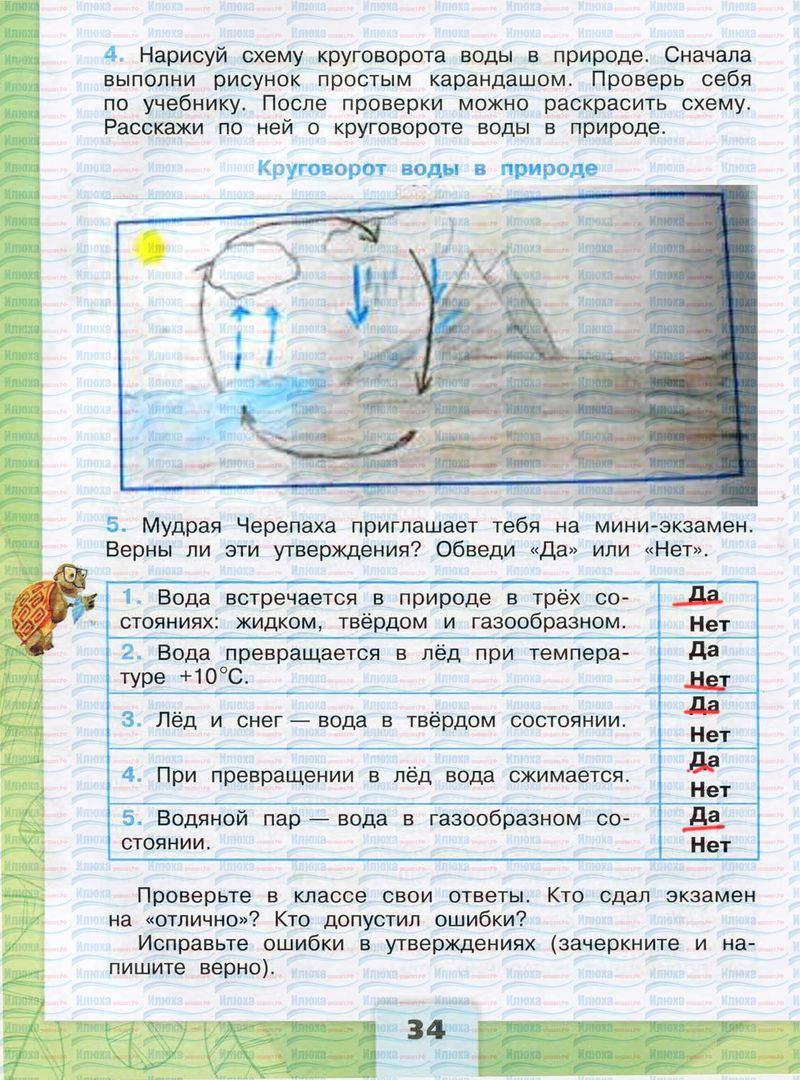 4. Нарисуй схему круговорота воды в природе. Сначала
выполни рисунок простым карандашом. Проверь себя
по учебнику. После проверки можно раскрасить схему.
Расскажи по ней о круговороте воды в природе.
Круговорот воды в природе
5. Мудрая Черепаха приглашает тебя на мини-экзамен.
Верны ли эти утверждения? Обведи «Да» или «Нет».
1. Вода встречается в природе в трёх со-
стояниях: жидком, твёрдом и газообразном.
Да
Нет
2. Вода превращается в лёд при темпера-
туре +10°С.
Да
Нет
3. Лёд и снег — вода в твёрдом состоянии.
Да
Нет
4. При превращении в лёд вода сжимается.
Да
Нет
5. Водяной пар — вода в газообразном со-
стоянии.
Да
Нет
Проверьте в классе свои ответы. Кто сдал экзамен
на «отлично»? Кто допустил ошибки?
Исправьте ошибки в утверждениях (зачеркните и на-
пишите верно).
34